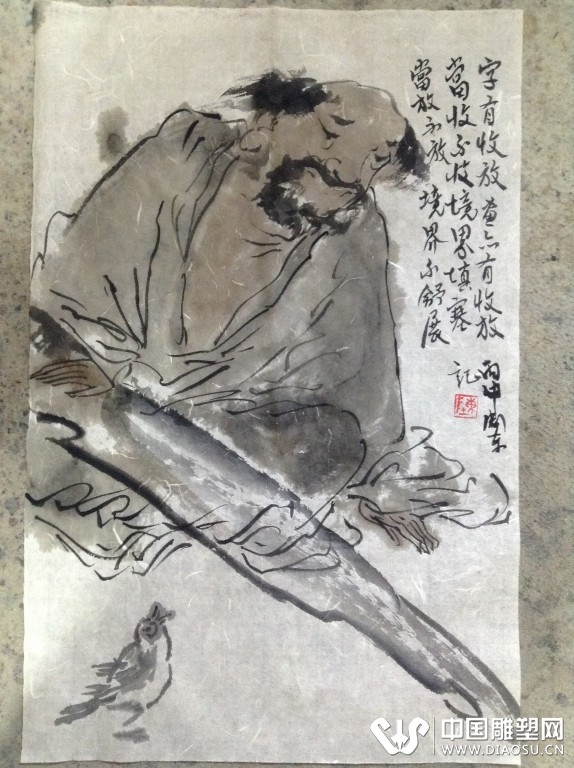 字有收放畫亦有收放
當收不收境界填塞
當放不放境界不舒展
丙申
記
中国雕塑网
WWW.DIAOSU.CN